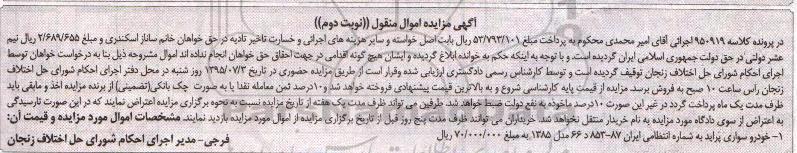 آگهی مزایده اموال منقول ((نوبت دوم))
در پرونده کلاسه ۹۵۰۹۱۹ اجرائی آقای امیر محمدی محکوم به پرداخت مبلغ ۵۳/۷۹۳/۱۰۱ ریال بابت اصل خواسته و سایر هزینه های اجرائی و خسارت تاخیر تادیه در حق خواهان خانم ساناز اسکندری و مبلغ ۲/۶۸۹/۶۵۵ ریال نیم
عشر دولتی در حق دولت جمهوری اسلامی ایران گردیده است. و با توجه به اینکه حکم به خوانده ابلاغ گردیده و ایشان هیچ گونه اقدامی در جهت احقاق حق خواهان انجام نداده اند اموال مشروحه ذیل بنا به درخواست خواهان توسط
اجرای احکام شورای حل اختلاف زنجان توقیف گردیده است و توسط کارشناس رسمی دادگستری ارزیابی شده وقرار است از طریق مزایده حضوری در تاریخ ۱۳۹۵/۰۷/۳ روز شنبه در محل دفتر اجرای احکام شورای حل اختلاف
زنجان راس ساعت ۱۰ صبح به فروش برسد. مزایده از قیمت پایه کارشناسی شروع و به بالاترین قیمت پیشنهادی فروخته خواهد شد و۱۰درصد ثمن معامله نقدا یا به صورت چک بانکی(تضمینی) از برنده مزایده اخذ و مابقی باید
ظرف مدت یک ماه پرداخت گردد در غیر این صورت ۱۰درصد ماخوذه به نفع دولت ضبط خواهد شد. طرفین می تواند ظرف مدت یک هفته از تاریخ مزایده نسبت به نحوه برگزاری مزایده اعتراض نمایند که در این صورت تارسیدگی
به اعتراض از سوی دادگاه مورد مزایده به نام خریدار منتقل نخواهد شد. خریداران می توانند ظرف مدت پنج روز قبل از تاریخ برگزاری مزایده از اموال مورد مزایده بازدید نمایند. مشخصات اموال مورد مزایده و قیمت آن:
۱- خودرو سواری پراید به شماره انتظامی ایران ۸۷-۸۵۳ د ۶۶ مدل ۱۳۸۵ به مبلغ ۷۰/۰۰۰/۰۰۰ ریال
فرجی- مدیر اجرای احکام شورای حل اختلاف زنجان